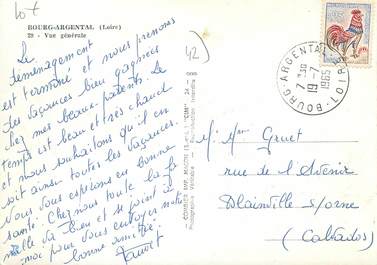 lot
BOURG-ARGENTAL (Loire)
28 - Vue générale
42
Le
déménagement
est terminé et nous prenons
des vacances bien gagnées
chez mes beaux-parents. Le
temps est beau et très chaud
et nous souhaitons qu'il en
soit ainsi toutes les vacances.
Nous vous espérons en bonne
santé. Chez nous toute la fa
mille va bien et se joint à
moi pour vous envoyer notre
bonne amitié.
BOURG-ARGENTAL
LOIRE
7 H 30
19-7
1965
M. Mme Gruet
rue de l'Avenir
Blainville s/orne
(Calvados)